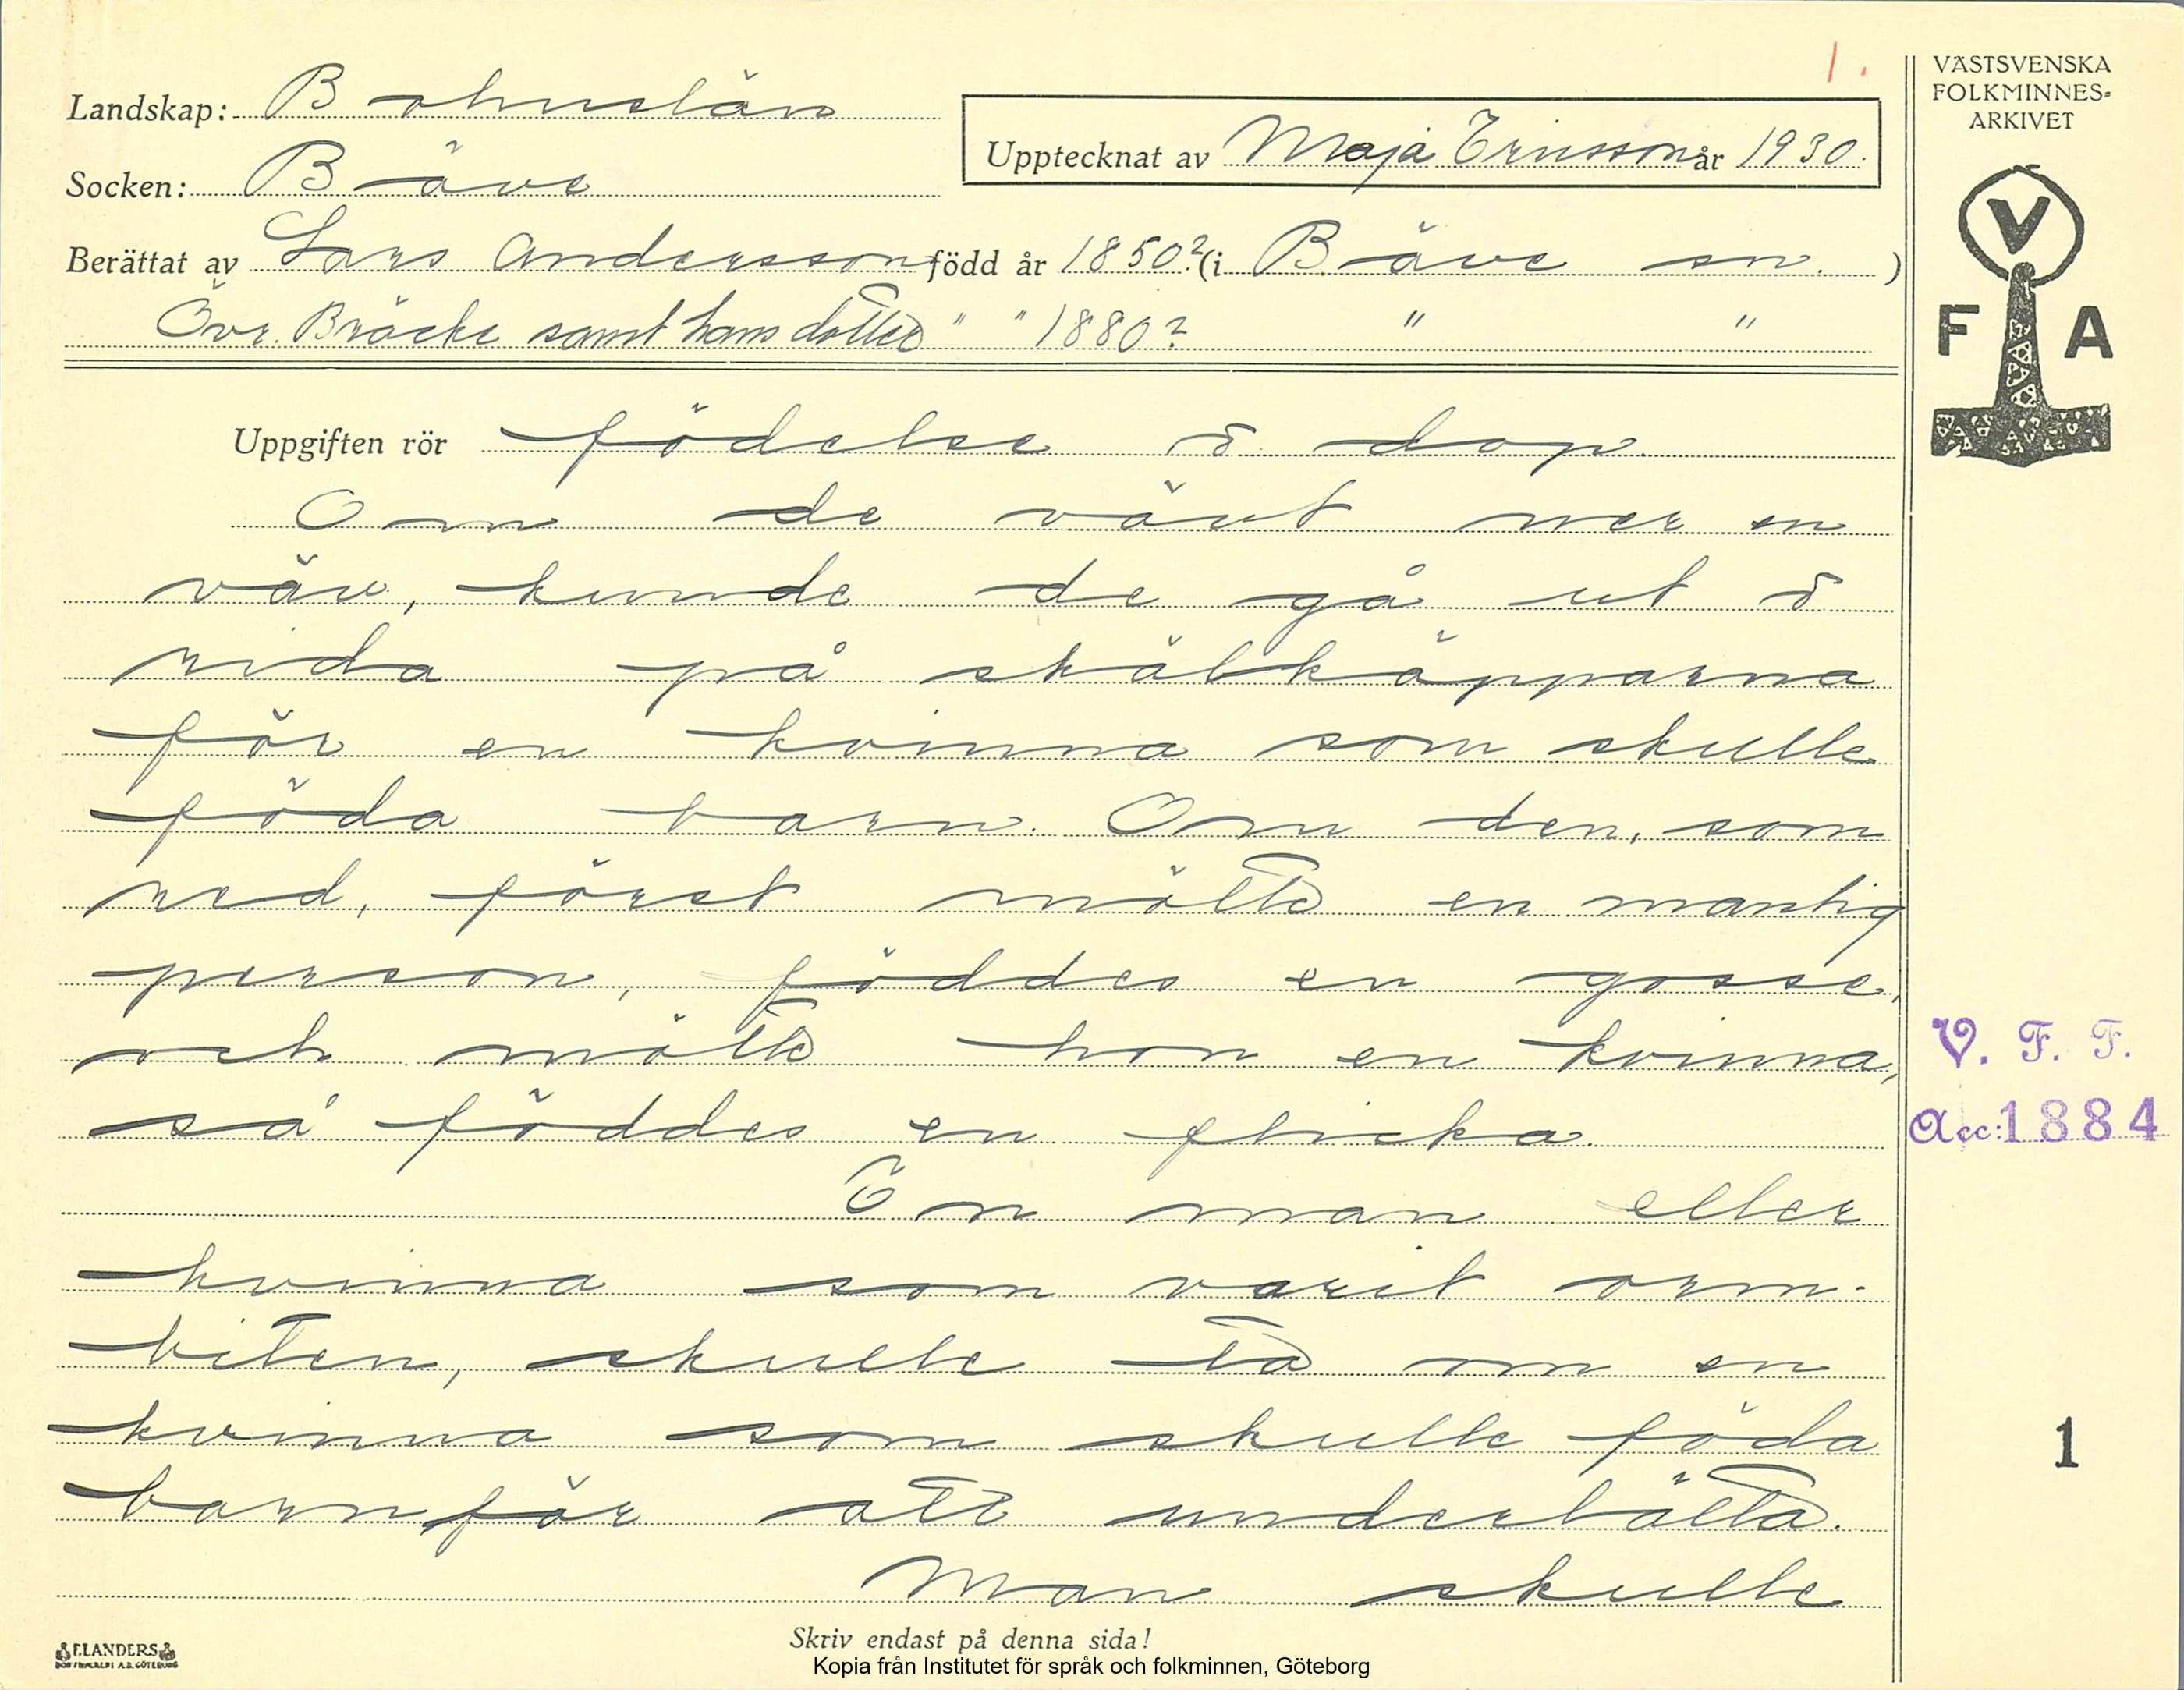 1.
VÄSTSVENSKA
FOLKMINNES-
ARKIVET
Landskap: Bohuslän
Upptecknat av Maja Ericsson år 1930.
Socken: Bäve
Berättat av Lars Andersson född år 1850? (i Bäve sn. )
Övr. Bräcke samt hans dotter " " 1880? " "
V
F A
Uppgiften rör födelse o dop.
Om de vävt ner en
väv, kunde de gå ut o
rida på skälkäpparna
för en kvinna som skulle
föda barn. Om den, som
red, först mötte en manlig
person, föddes en gosse,
och mötte hon en kvinna,
så föddes en flicka.
V. F. F.
Acc: 1884
En man eller
kvinna som varit orm-
biten, skulle ta om en
kvinna som skulle föda
barn för att underlätta.
1
Man skulle
Skriv endast på denna sida!
ELANDERS
BOKTRYCKERI A.B. GÖTEBORG
Kopia från Institutet för språk och folkminnen, Göteborg